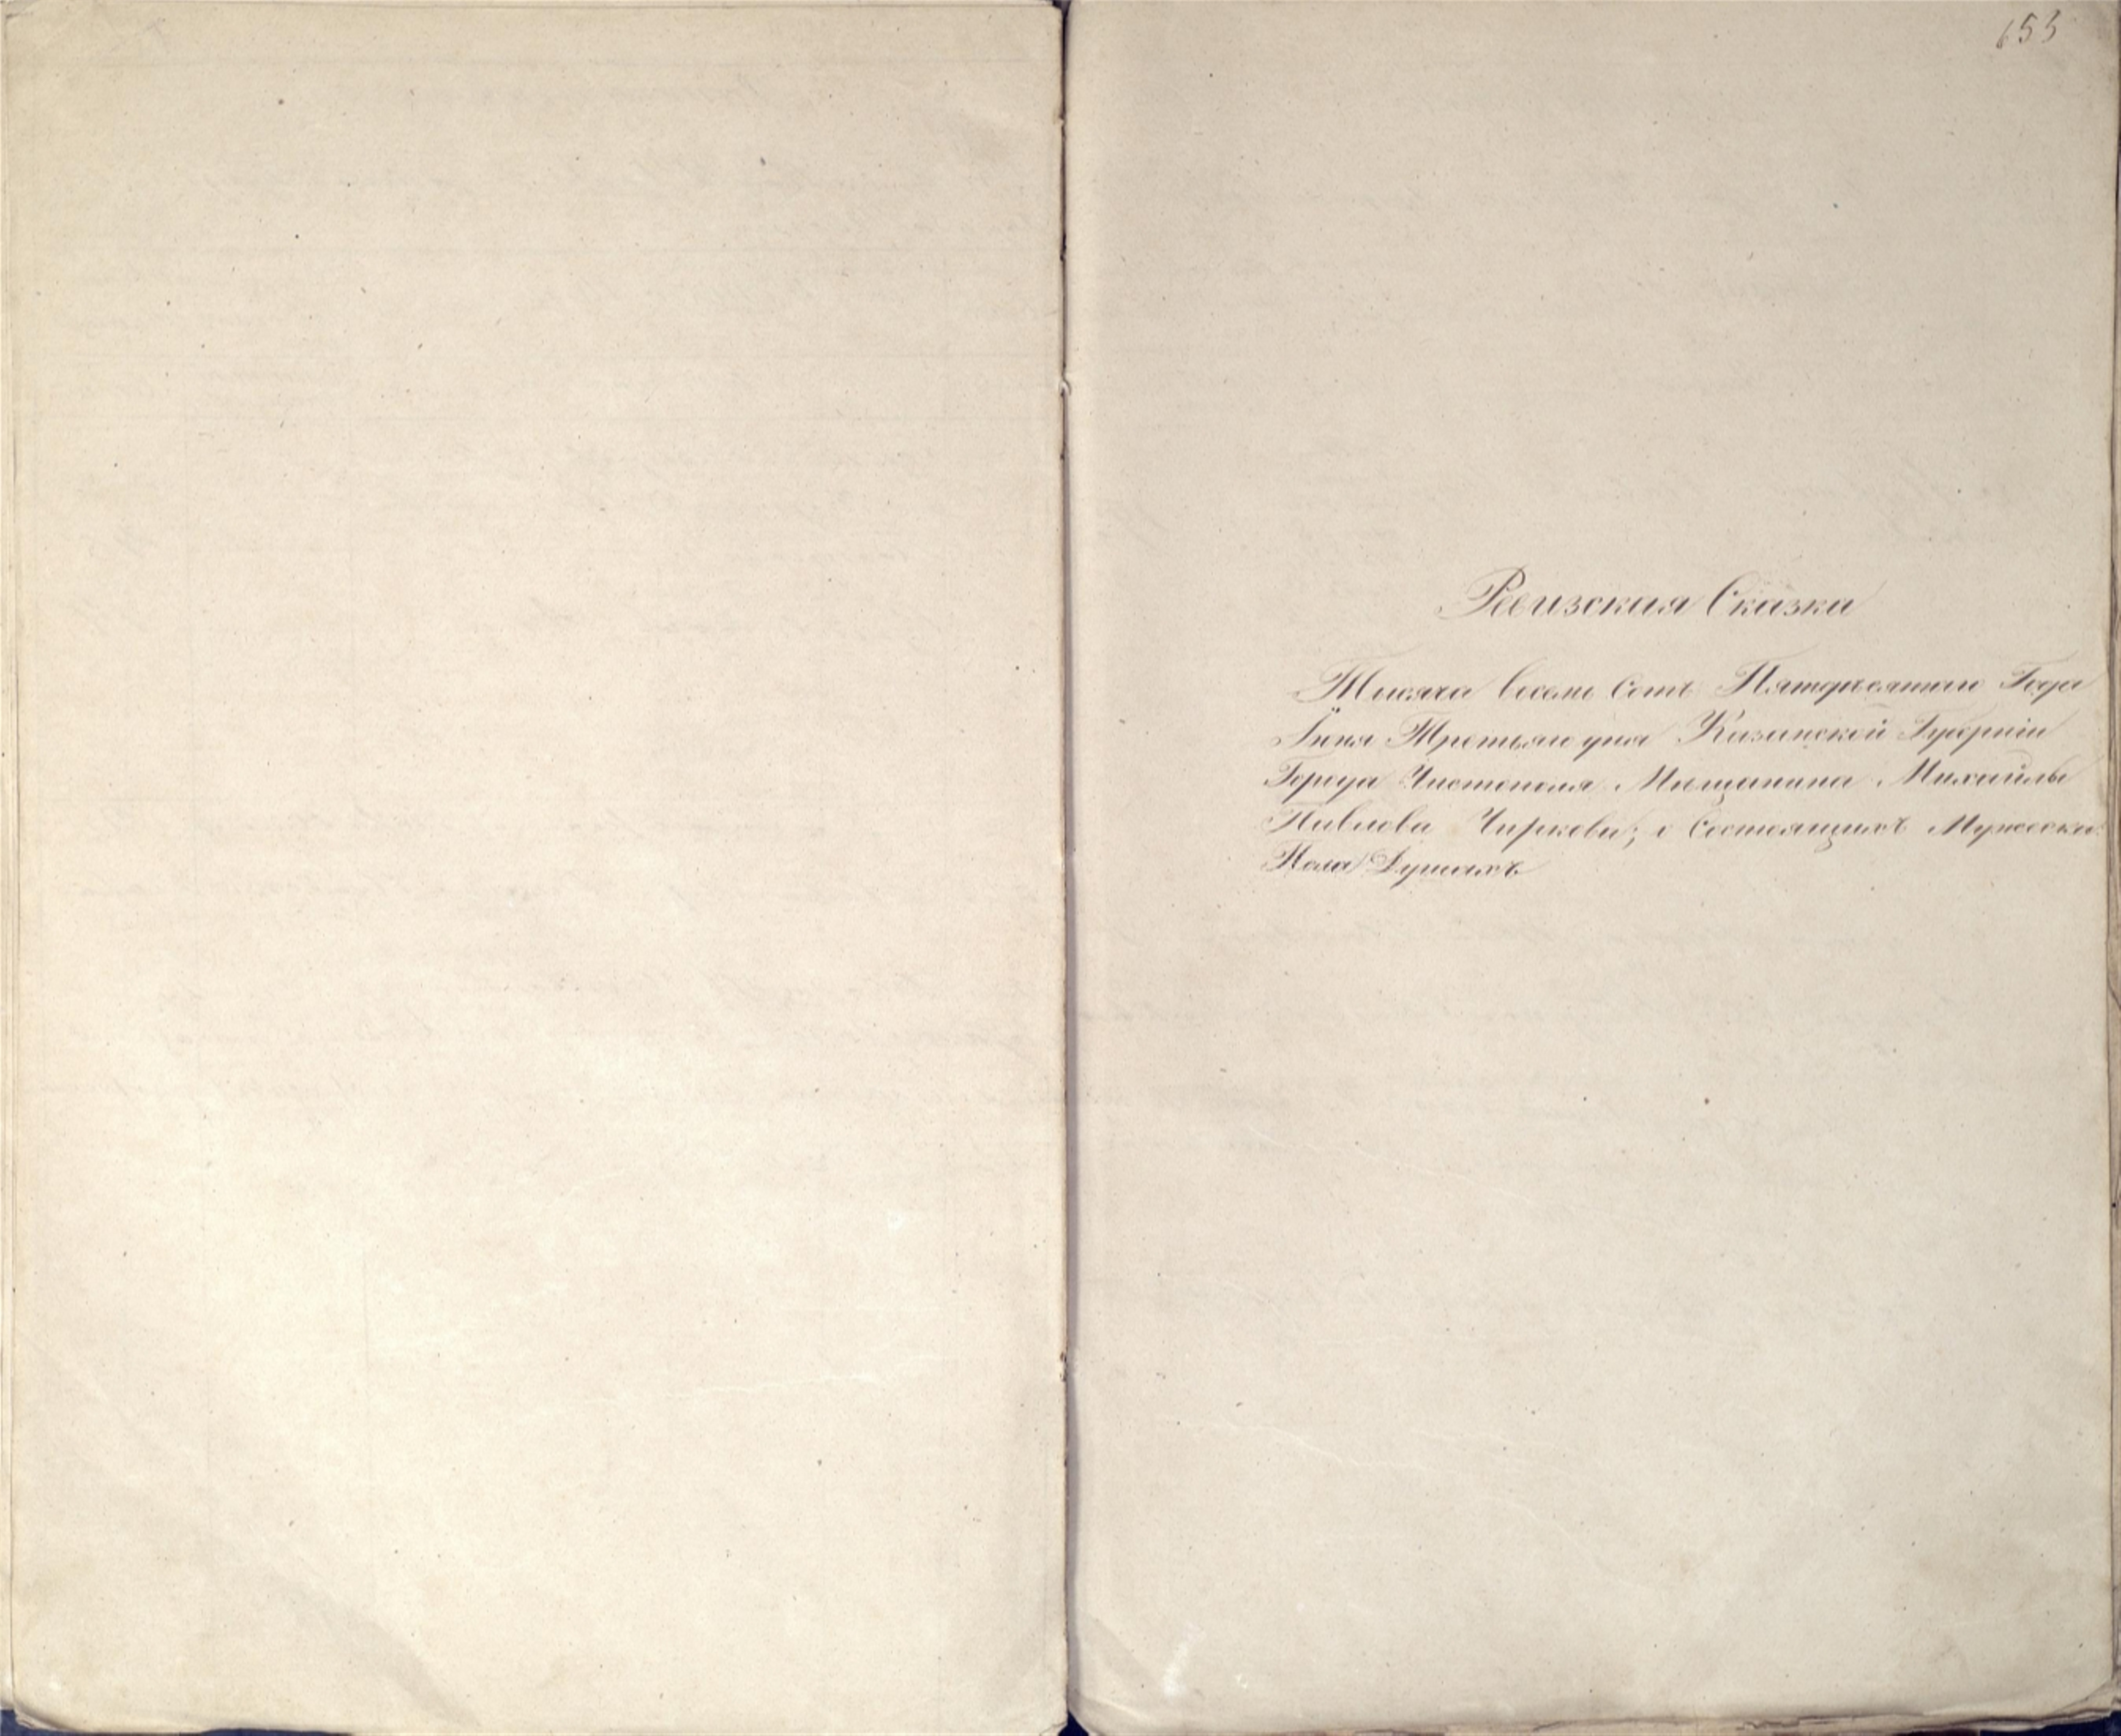 653
Ревизская Сказка
Тысяча восемь сотъ Пятдесятаго Года
Іюня Третьяго дня Казанской Губерніи
Города Чистополя Мищанина Михайлы
Павлова Чиркова; о Состоящихъ Мужеска
Пола Душахъ